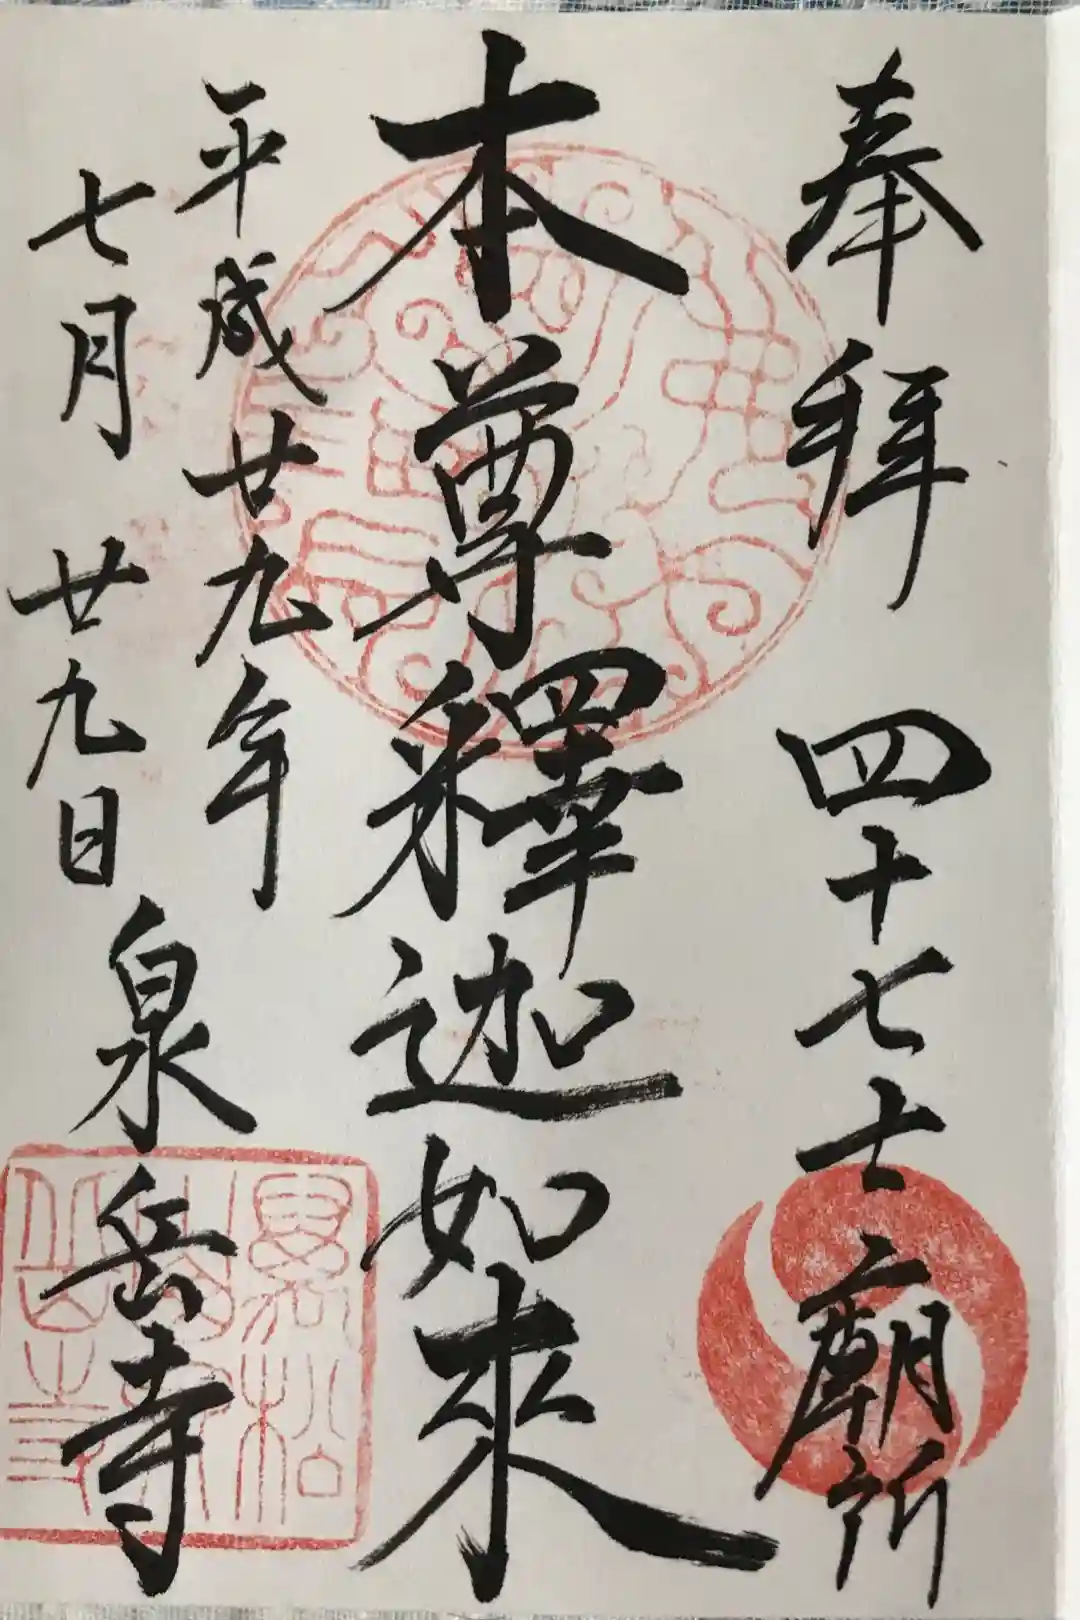 奉拝 四十七士廟所
本尊釋迦如來
平成廿九年
七月廿九日 泉岳寺